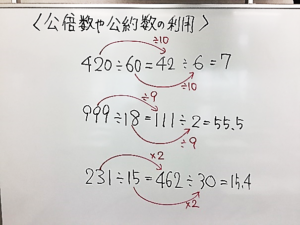 〈公倍数や公約数の利用〉
÷10
420÷60=42÷6=7
÷10
÷9
999÷18=111÷2=55.5
÷9
×2
231÷15=462÷30=15.4
×2